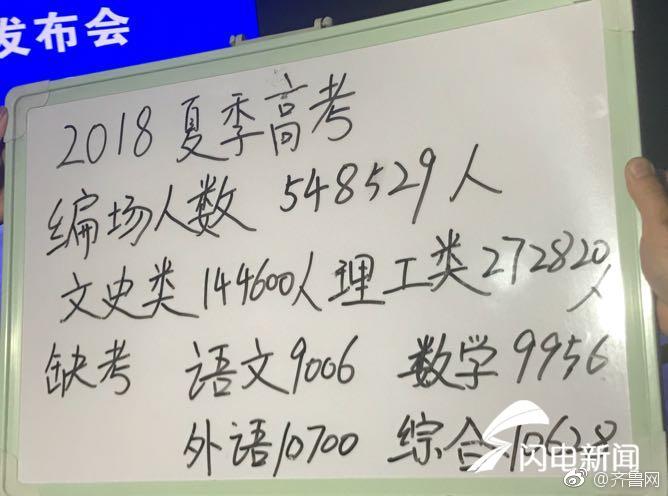 发布会
2018 夏季高考
编场人数 548529人
文史类144600人理工类272820人
缺考 语文9006 数学9956
外语10700 综合10628
闪电新闻
@齐鲁网